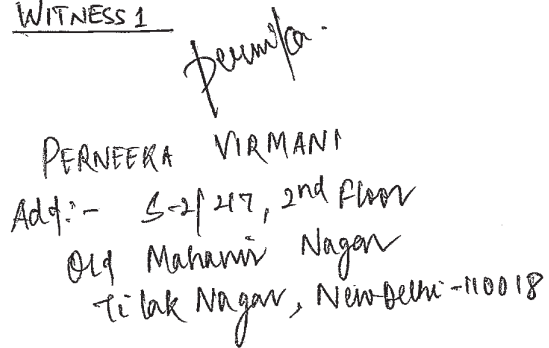 WITNESS 1
PERNEEKA VIRMANI
Add:- S-2/217, 2nd Floor
Old Mahavir Nagar
Tilak Nagar, New Delhi-110018